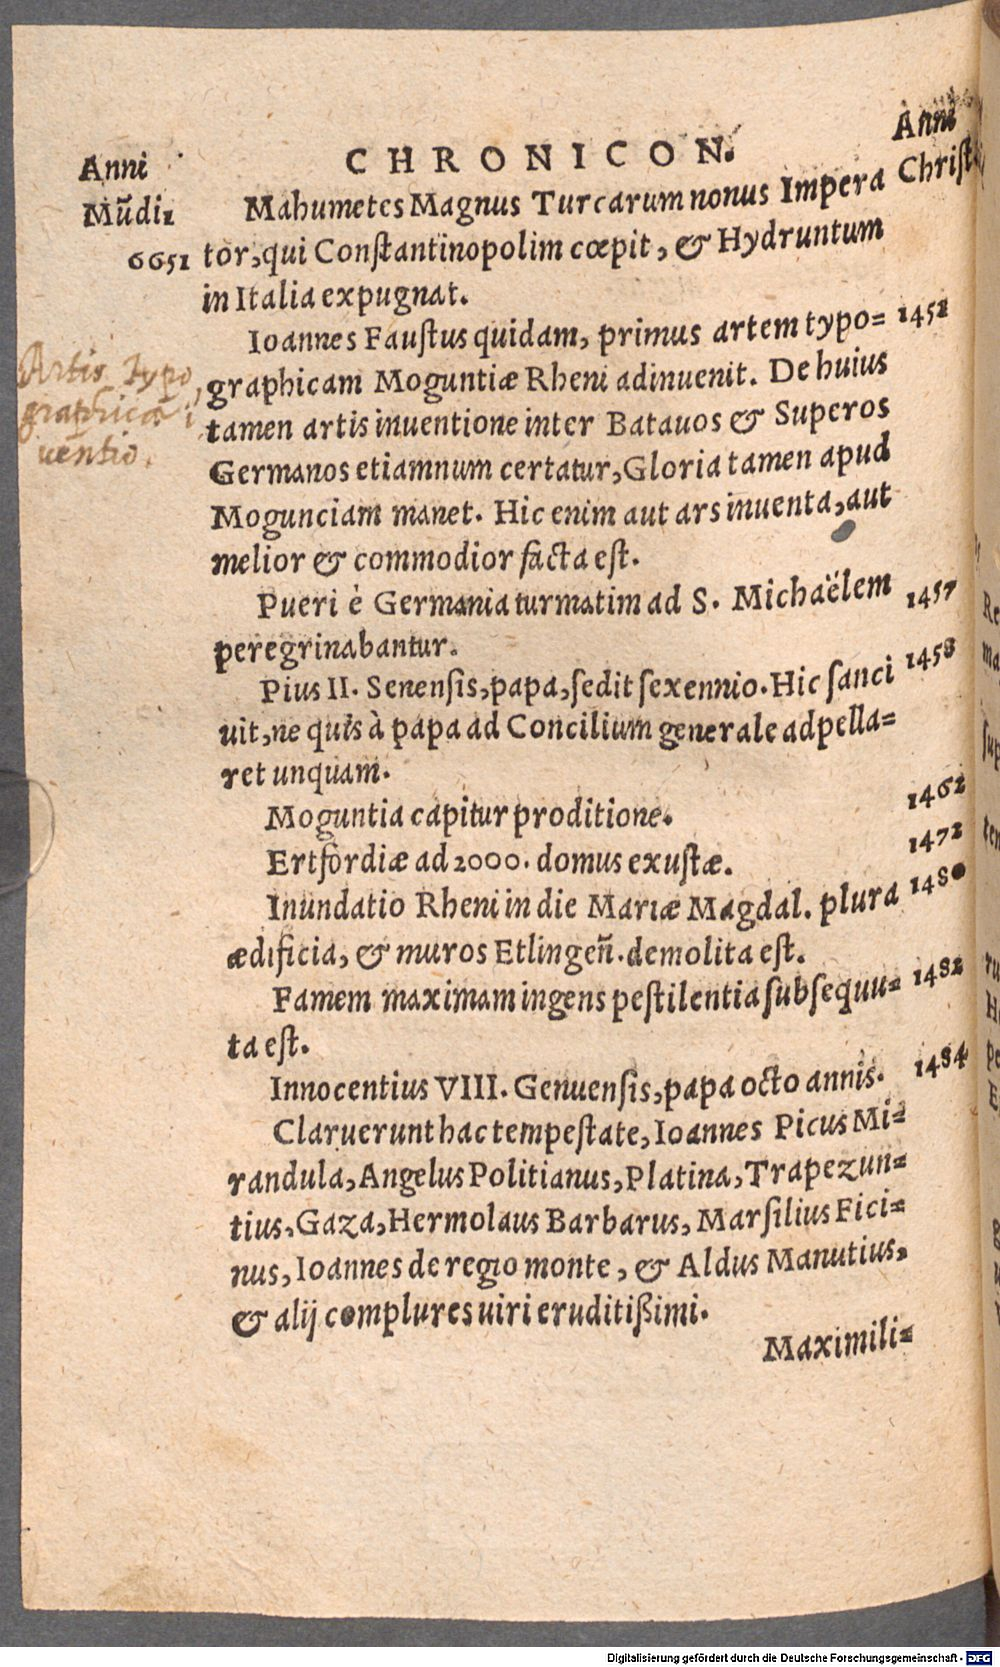 Anni
Mūdi:
CHRONICON.
Anni
Christ
Mahumetes Magnus Turcarum nonus Impera
6651 tor, qui Constantinopolim cœpit, & Hydruntum
in Italia expugnat.
Ioannes Faustus quidam, primus artem typo= 1452
Artis typo
graphicam Moguntiæ Rheni adinuenit. De huius
graphicæ i
tamen artis inuentione inter Batauos & Superos
uentio.
Germanos etiamnum certatur, Gloria tamen apud
Mogunciam manet. Hic enim aut ars inuenta, aut
melior & commodior facta est.
Pueri è Germania turmatim ad S. Michaëlem 1457
peregrinabantur.
Pius II. Senensis, papa, sedit sexennio. Hic sanci 1458
uit, ne quis à papa ad Concilium generale adpella=
ret unquam.
Moguntia capitur proditione. 1462
Ertfordiæ ad 2000. domus exustæ. 1472
Inundatio Rheni in die Mariæ Magdal. plura 1480
ædificia, & muros Etlingen̄. demolita est.
Famem maximam ingens pestilentia subsequu= 1482
ta est.
Innocentius VIII. Genuensis, papa octo annis. 1484
Claruerunt hac tempestate, Ioannes Picus Mi=
randula, Angelus Politianus, Platina, Trapezun=
tius, Gaza, Hermolaus Barbarus, Marsilius Fici=
nus, Ioannes de regio monte, & Aldus Manutius,
& alij complures uiri eruditißimi.
Maximili=
Digitalisierung gefördert durch die Deutsche Forschungsgemeinschaft - DFG